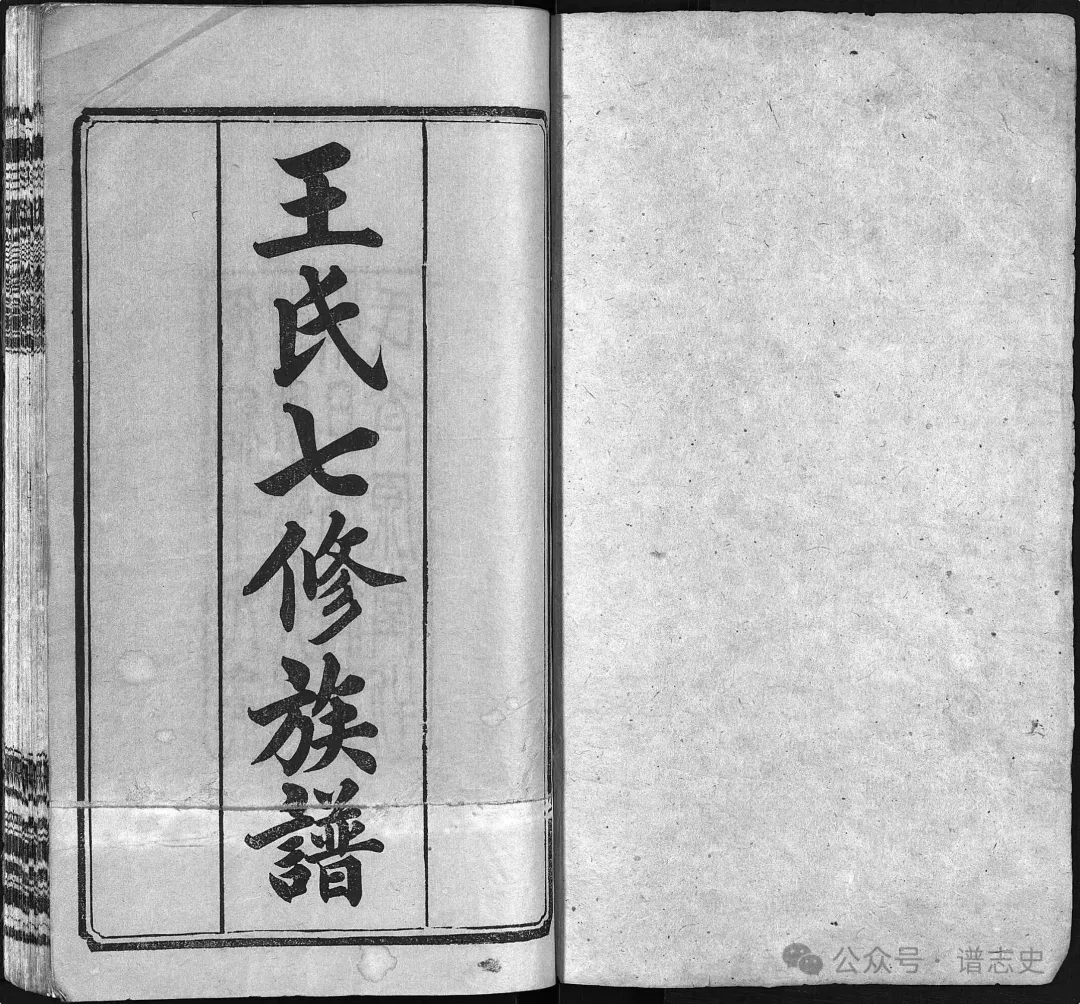 王氏七修族譜
公众号 · 谱志史